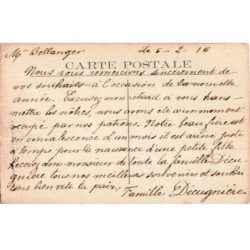 Mr Bellanger Le 5-2-16
CARTE POSTALE
Nous vous remercions sincèrement de
vos souhaits à l'occasion de la nouvelle
année. Excusez mon retard à vous trans-
mettre les nôtres, nous avons été
occupé par nos patrons. Notre beau frère est
en convalescence d'un mois il est arrivé juste
à temps pour la naissance d'une petite fille
Recevez donc monsieur de toute la famille Dieu-
gnière tous nos meilleurs souvenirs et souhai-
tons bien vite la paix.
Famille Dieugnière